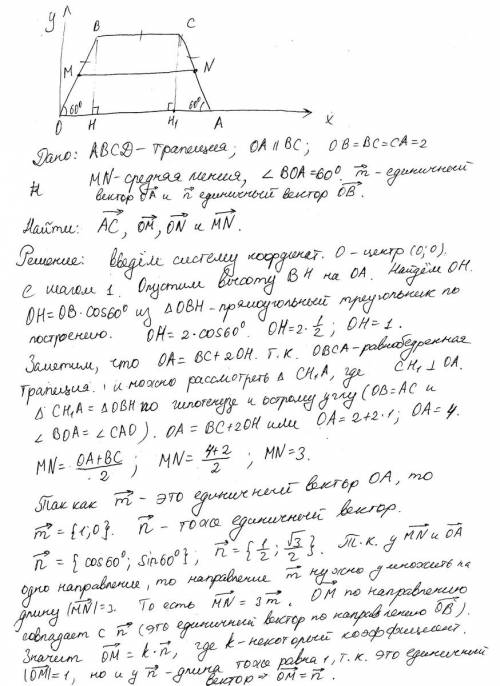 y
B
C
M
N
60°
60°
O
H
H₁
A
x
Дано: ABCD - трапеция; OA ∥ BC; OB=BC=CA=2
MN-средняя линия, ∠BOA=60°. m⃗ - единичный
вектор OA⃗ и n⃗ единичный вектор OB⃗.
Найти: AC⃗, OM⃗, ON⃗ и MN⃗.
Решение: введём систему координат. O - центр (0;0).
с шагом 1. Опустим высоту BH на OA. Найдём OH.
OH=OB·cos60° из △OBH-прямоугольный треугольник по
построению. OH = 2·cos60°. OH=2·1/2; OH=1.
Заметим, что OA=BC+2OH. т.к. OBCA-равнобедренная
трапеция. и можно рассмотреть △CH₁A, где CH₁⊥OA.
△CH₁A=△OBH по гипотенузе и острому углу (OB=AC и
∠BOA=∠CAO). OA=BC+2OH или OA=2+2·1; OA=4.
MN=(OA+BC)/2; MN=(4+2)/2; MN=3.
Так как m⃗ - это единичный вектор OA, то
m⃗={1;0}. n⃗ - тоже единичный вектор.
n⃗={cos60°; sin60°}; n⃗={1/2; √3/2}. Т.к. у MN⃗ и OA⃗
одно направление, то направление m⃗ нужно умножить на
длину |MN⃗|=3. То есть MN⃗=3m⃗. OM⃗ по направлению
совпадает с n⃗ (это единичный вектор по направлению OB⃗).
Значит OM⃗=k·n⃗, где k-некоторый коэффициент.
|OM⃗|=1, но и у n⃗ - длина тоже равна 1, т.к. это единичный
вектор ⇒ OM⃗=n⃗.